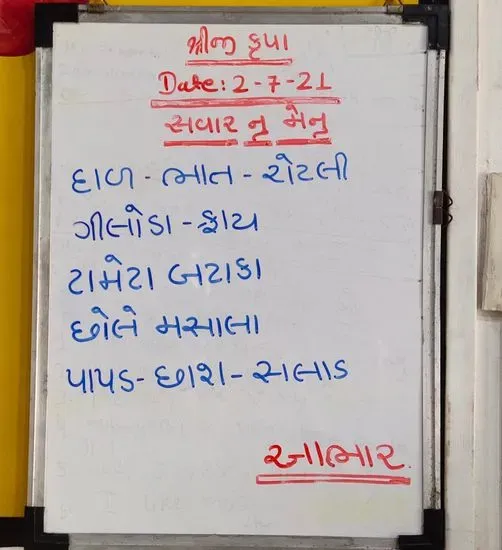 શ્રીજી કૃપા
Date: 2-7-21
સવાર નુ મેનુ
દાળ - ભાત - રોટલી
ગીલોડા - ફ્રાય
ટામેટા બટાકા
છોલે મસાલા
પાપડ - છાશ - સલાડ
આભાર